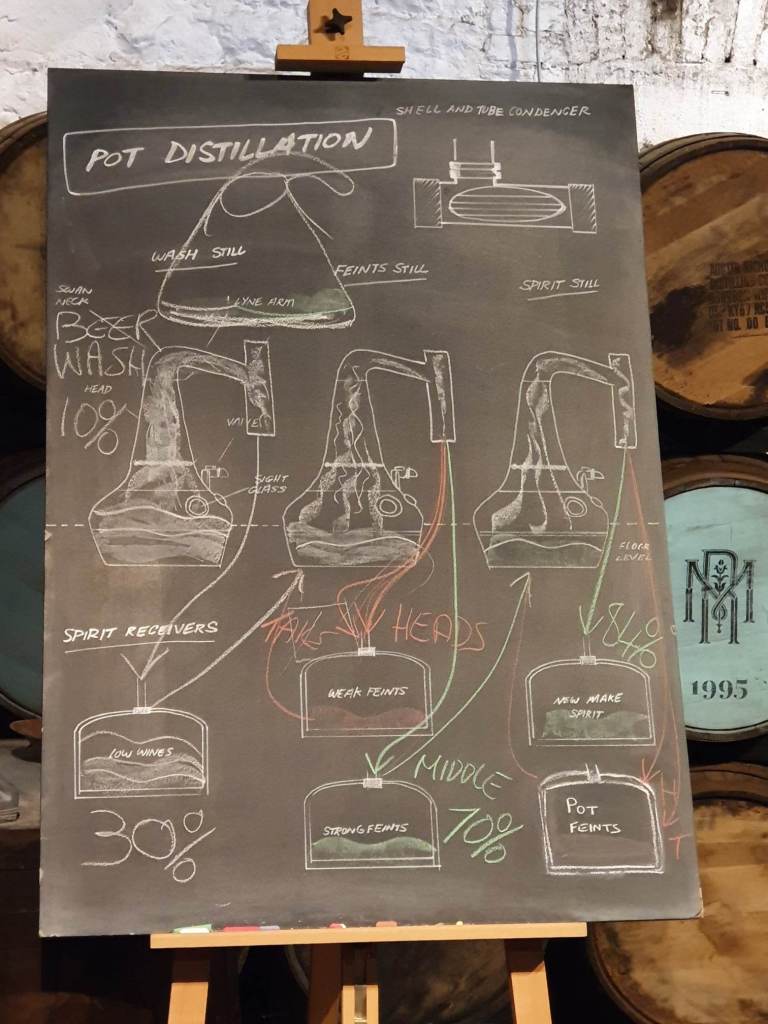 SHELL AND TUBE CONDENCER
POT DISTILLATION
WASH STILL
FEINTS STILL
SPIRIT STILL
SWAN
NECK
LYNE ARM
BEER
WASH
HEAD
10%
VALVE
SIGHT
GLASS
FLOOR
LEVEL
SPIRIT RECEIVERS
TAILS
HEADS
84%
WEAK FEINTS
NEW MAKE
SPIRIT
LOW WINES
MIDDLE
70%
STRONG FEINTS
POT
FEINTS
H
T
30%
1995